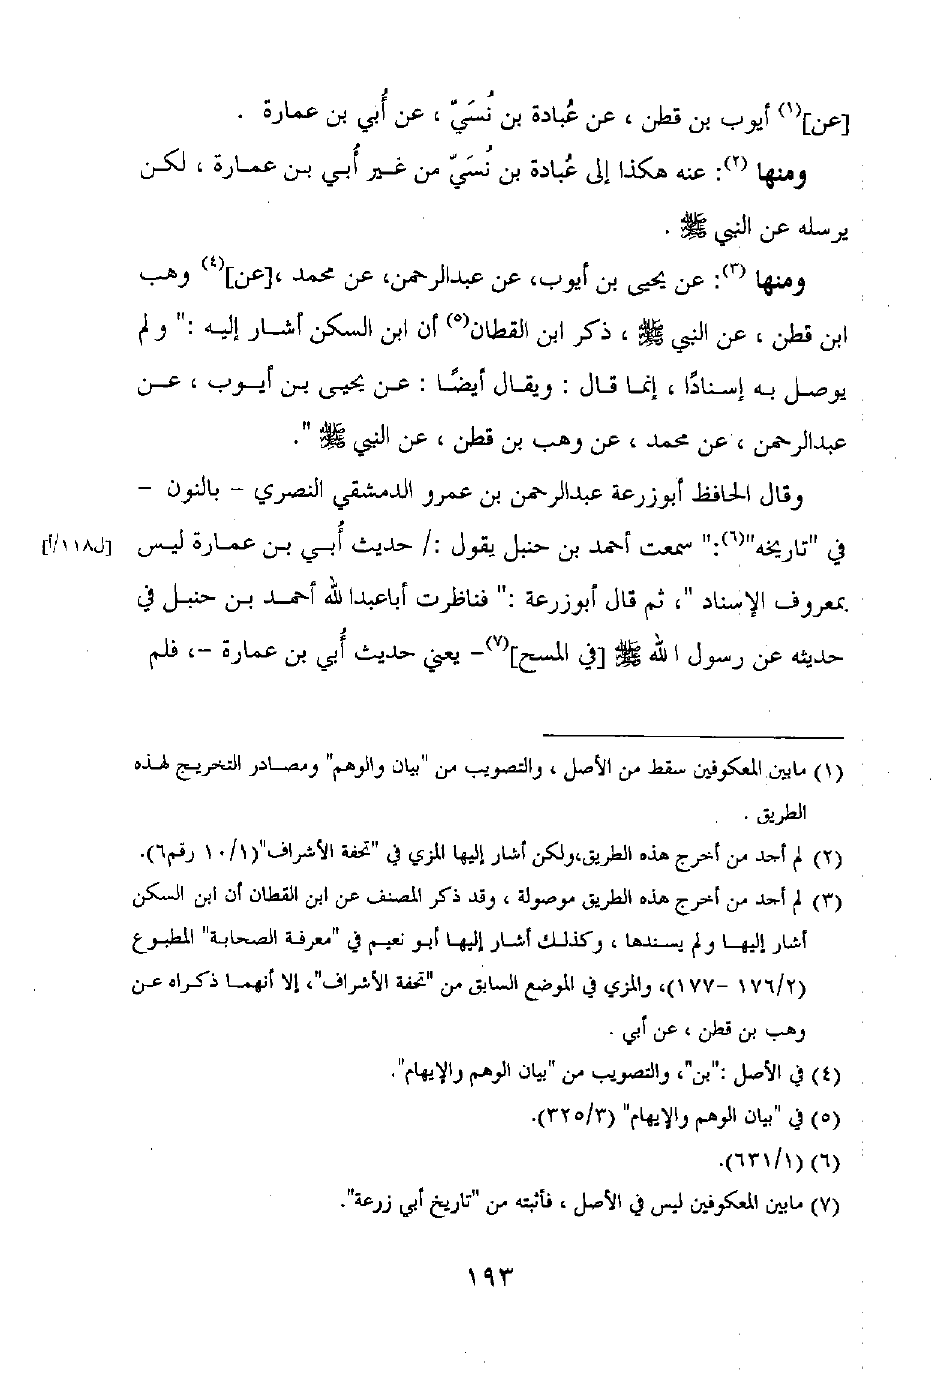 [عن](١) أيوب بن قطن ، عن عُبادة بن نُسَيّ ، عن أُبي بن عمارة .
ومنها (٢): عنه هكذا إلى عُبادة بن نُسَيّ من غير أُبي بن عمارة ، لكن
يرسله عن النبي ﷺ .
ومنها (٣): عن يحيى بن أيوب، عن عبدالرحمن، عن محمد ،[عن](٤) وهب
ابن قطن ، عن النبي ﷺ ، ذكر ابن القطان(٥) أن ابن السكن أشار إليه :" و لم
يوصل به إسنادًا ، إنما قال : ويقال أيضًا : عن يحيى بن أيوب ، عن
عبدالرحمن ، عن محمد ، عن وهب بن قطن ، عن النبي ﷺ ".
وقال الحافظ أبوزرعة عبدالرحمن بن عمرو الدمشقي النصري - بالنون -
في "تاريخه"(٦):" سمعت أحمد بن حنبل يقول :/ حديث أُبي بن عمارة ليس [ل١١٨/أ]
بمعروف الإسناد "، ثم قال أبوزرعة :" فناظرت أباعبدا لله أحمد بن حنبل في
حديثه عن رسول ا لله ﷺ [في المسح](٧)- يعني حديث أُبي بن عمارة -، فلم
(١) مابين المعكوفين سقط من الأصل ، والتصويب من "بيان والوهم" ومصادر التخريج لهذه
الطريق .
(٢) لم أجد من أخرج هذه الطريق،ولكن أشار إليها المزي في "تحفة الأشراف"(١٠/١ رقم٦).
(٣) لم أجد من أخرج هذه الطريق موصولة ، وقد ذكر المصنف عن ابن القطان أن ابن السكن
أشار إليها و لم يسندها ، وكذلك أشار إليها أبو نعيم في "معرفة الصحابة" المطبوع
(١٧٦/٢ -١٧٧)، والمزي في الموضع السابق من "تحفة الأشراف"، إلا أنهما ذكراه عن
وهب بن قطن ، عن أبي .
(٤) في الأصل :"بن"، والتصويب من "بيان الوهم والإيهام".
(٥) في "بيان الوهم والإيهام" (٣٢٥/٣).
(٦) (٦٣١/١).
(٧) مابين المعكوفين ليس في الأصل ، فأثبته من "تاريخ أبي زرعة".
١٩٣